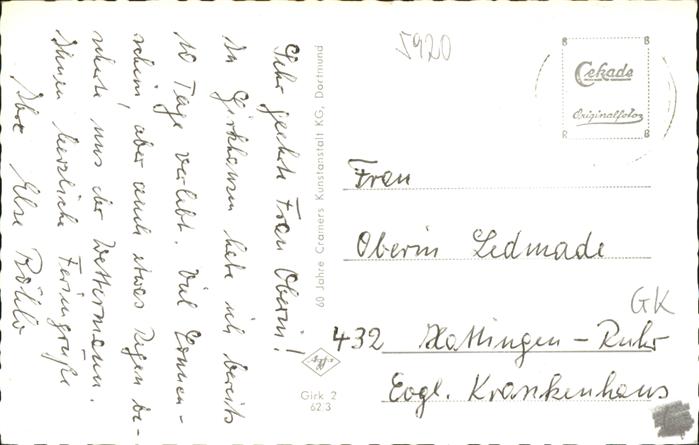 Sehr geehrte Frau Oberin!
In Girkhausen habe ich bereits
10 Tage verlebt. Viel Sonnen-
schein, aber auch etwas Regen be-
scherte uns der Wettermann.
Ihnen herzliche Feriengrüße
Ihre Else Röhle
60 Jahre Cramers Kunstanstalt KG, Dortmund
Girk 2
62/3
5920
B B
Cekade
Originalfotos
R B
Frau
Oberin Ledmade
GK
432 Hattingen-Ruhr
Evgl. Krankenhaus